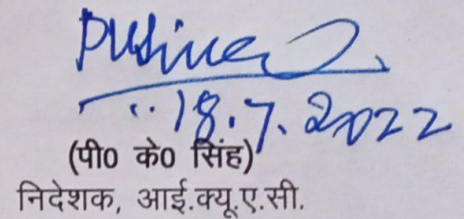 18.7.2022
(पी0 के0 सिंह)
निदेशक, आई.क्यू.ए.सी.